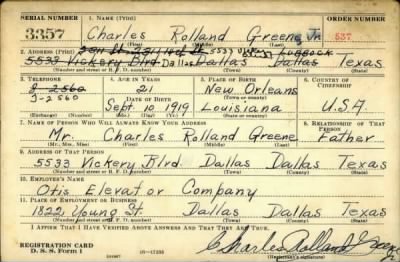 SERIAL NUMBER 1. NAME (Print) ORDER NUMBER
3357 Charles Rolland Greene Jr. 537
(First) (Middle) (Last)
2. ADDRESS (Print)
5533 Vickery Blvd. Dallas Dallas Texas
(Number and street or R. F. D. number) (Town) (County) (State)
3. TELEPHONE 4. AGE IN YEARS 5. PLACE OF BIRTH 6. COUNTRY OF CITIZENSHIP
J-2560 21 New Orleans
J-2560 DATE OF BIRTH (Town or county)
Sept. 10 1919 Louisiana U.S.A.
(Exchange) (Number) (Mo.) (Day) (Yr.) (State or country)
7. NAME OF PERSON WHO WILL ALWAYS KNOW YOUR ADDRESS 8. RELATIONSHIP OF THAT PERSON
Mr. Charles Rolland Greene Father
(Mr., Mrs., Miss) (First) (Middle) (Last)
9. ADDRESS OF THAT PERSON
5533 Vickery Blvd. Dallas Dallas Texas
(Number and street or R. F. D. number) (Town) (County) (State)
10. EMPLOYER'S NAME
Otis Elevator Company
11. PLACE OF EMPLOYMENT OR BUSINESS
1822 Young St. Dallas Dallas Texas
(Number and street or R. F. D. number) (Town) (County) (State)
I AFFIRM THAT I HAVE VERIFIED ABOVE ANSWERS AND THAT THEY ARE TRUE.
REGISTRATION CARD
D. S. S. Form 1 Charles Rolland Greene Jr.